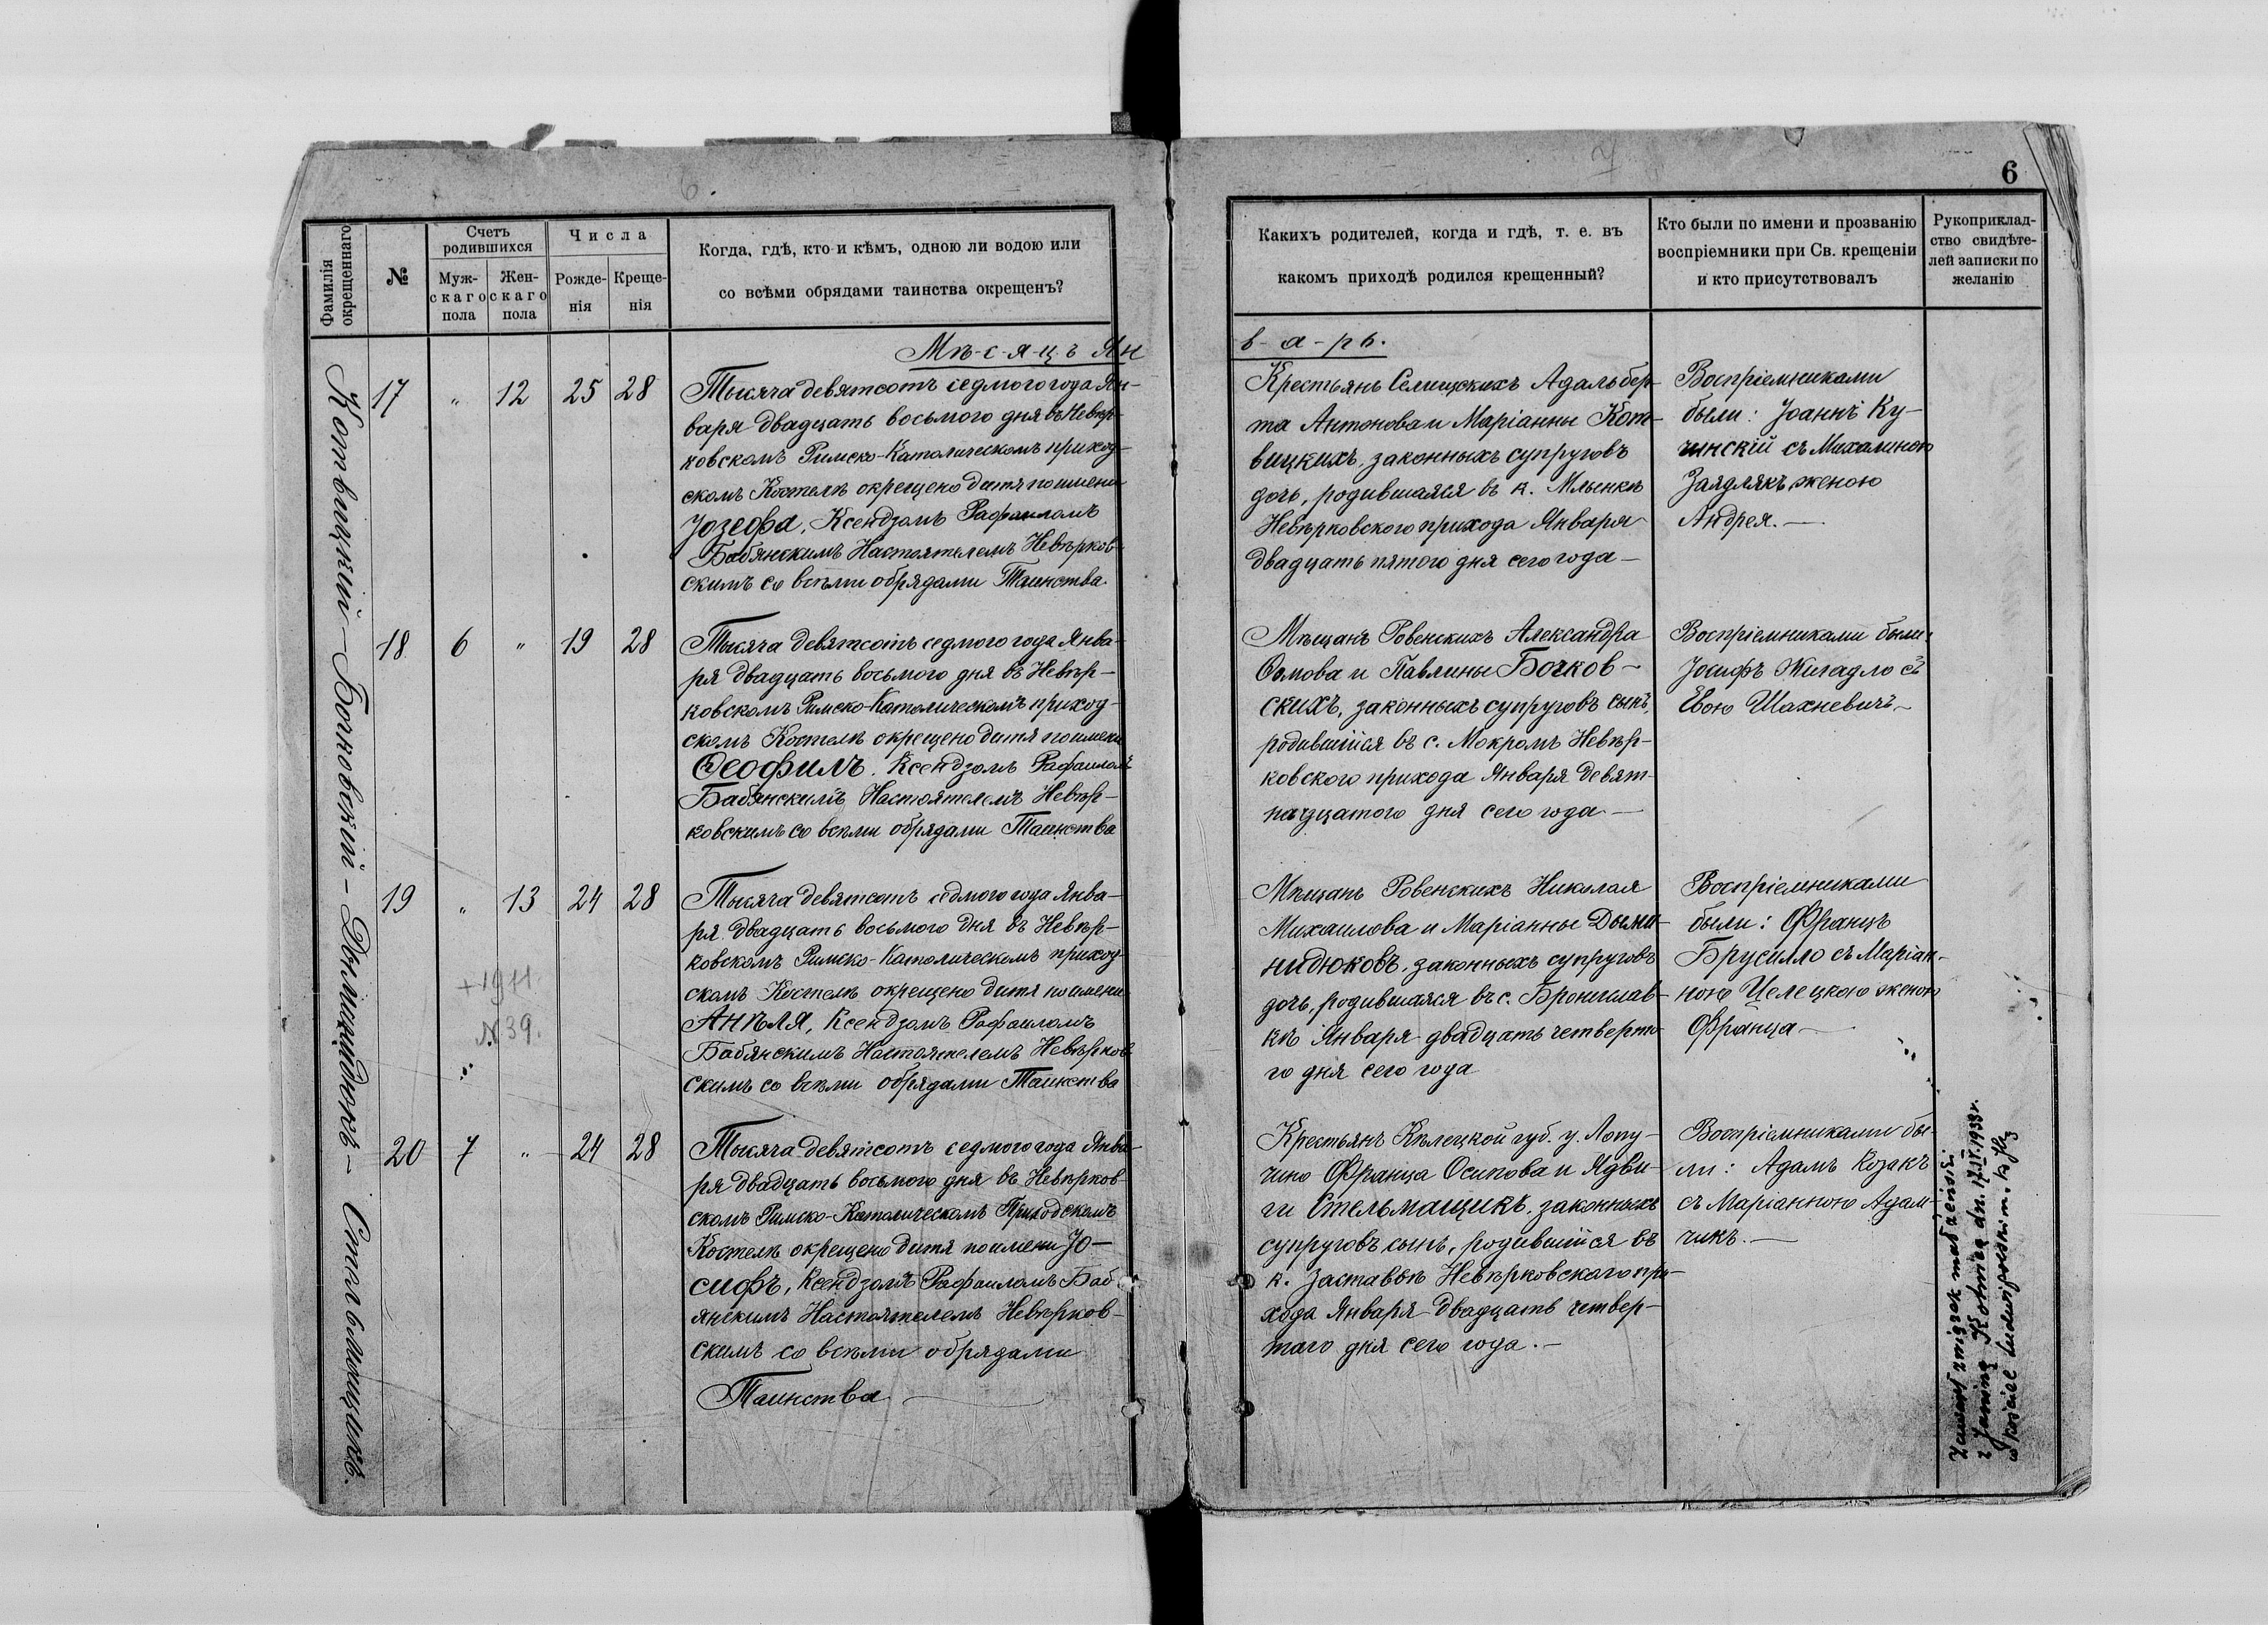 6.
7
6
Фамилія окрещеннаго
№
Счетъ родившихся
Муж-
скаго
пола
Жен-
скаго
пола
Числа
Рожде-
нія
Креще-
нія
Когда, гдѣ, кто и кѣмъ, одною ли водою или
со всѣми обрядами таинства окрещенъ?
Какихъ родителей, когда и гдѣ, т. е. въ
какомъ приходѣ родился крещенный?
Кто были по имени и прозванію
воспріемники при Св. крещеніи
и кто присутствовалъ
Рукоприклад-
ство свидѣте-
лей записки по
желанію
Мѣ-с-я-ц-ъ Ян
в-а-рь.
Котвицкій – Бочковскій – Дыминидюкъ – Стельмащикъ.
17 " 12 25 28
Тысяча девятсотъ седмого года Ян-
варя двадцать восьмого дня въ Невѣр-
ковскомъ Римско-Католическомъ приход-
скомъ Костелѣ окрещено дитя по имени
Іозефа, Ксендзомъ Рафаиломъ
Бабянскимъ Настоятелемъ Невѣрков-
скимъ со всѣми обрядами Таинства.
Крестьянъ Селищскихъ Адальбер-
та Антонова и Маріанны Кот-
вицкихъ, законныхъ супруговъ
дочь, родившаяся въ к. Млынкѣ
Невѣрковского прихода Января
двадцать пятого дня сего года —
Воспріемниками
были: Іоаннъ Ку-
чинскій съ Михалиною
Заядлякъ женою
Андрея. —
18 6 " 19 28
Тысяча девятсотъ седмого года Янва-
ря двадцать восьмого дня въ Невѣр-
ковскомъ Римско-Католическомъ приход-
скомъ Костелѣ окрещено дитя по имени
Ѳеофилъ. Ксендзомъ Рафаиломъ
Бабянскимъ Настоятелемъ Невѣр-
ковскимъ со всѣми обрядами Таинства
Мѣщанъ Ровенскихъ Александра
и Павлины Бочков-
скихъ, законныхъ супруговъ сынъ,
родившійся въ с. Мокромъ Невѣр-
ковского прихода Января девят-
надцатого дня сего года —
Воспріемниками были:
Іосифъ Жигадло съ
Евою Шахневичъ —
19 " 13 24 28
+ 1911.
N 39.
Тысяча девятсотъ седмого года Янва-
ря двадцать восьмого дня въ Невѣр-
ковскомъ Римско-Католическомъ приход-
скомъ Костелѣ окрещено дитя по имени
Анѣля, Ксендзомъ Рафаиломъ
Бабянскимъ Настоятелемъ Невѣрков-
скимъ со всѣми обрядами Таинства
Мѣщанъ Ровенскихъ Николая
Михаилова и Маріанны Дыми-
нидюковъ, законныхъ супруговъ
дочь, родившаяся въ с. Бронислав-
кѣ Января двадцать четверто-
го дня сего года
Воспріемниками
были: Францъ
Брусилло съ Маріан-
ною Целецкою женою
Франца —
20 7 " 24 28
Тысяча девятсотъ седмого года Янва-
ря двадцать восьмого дня въ Невѣрков-
скомъ Римско-Католическомъ Приходскомъ
Костелѣ окрещено дитя по имени Іо-
сифъ, Ксендзомъ Рафаиломъ Баб-
янскимъ Настоятелемъ Невѣрков-
скимъ со всѣми обрядами
Таинства
Крестьянъ Кѣлецкой губ. у. Лопу-
чно Франца Осипова и Ядви-
ги Стельмащикъ, законныхъ
супруговъ сынъ, родившійся въ
к. Заставѣ Невѣрковского при-
хода Января двадцать четвер-
таго дня сего года. —
Воспріемниками бы-
ли: Адамъ Козакъ
съ Маріанною Адам-
чикъ. —
Zawarł związek małżeński
z Janiną Kotnica dn. 17.IV.1938 r.
w kościele